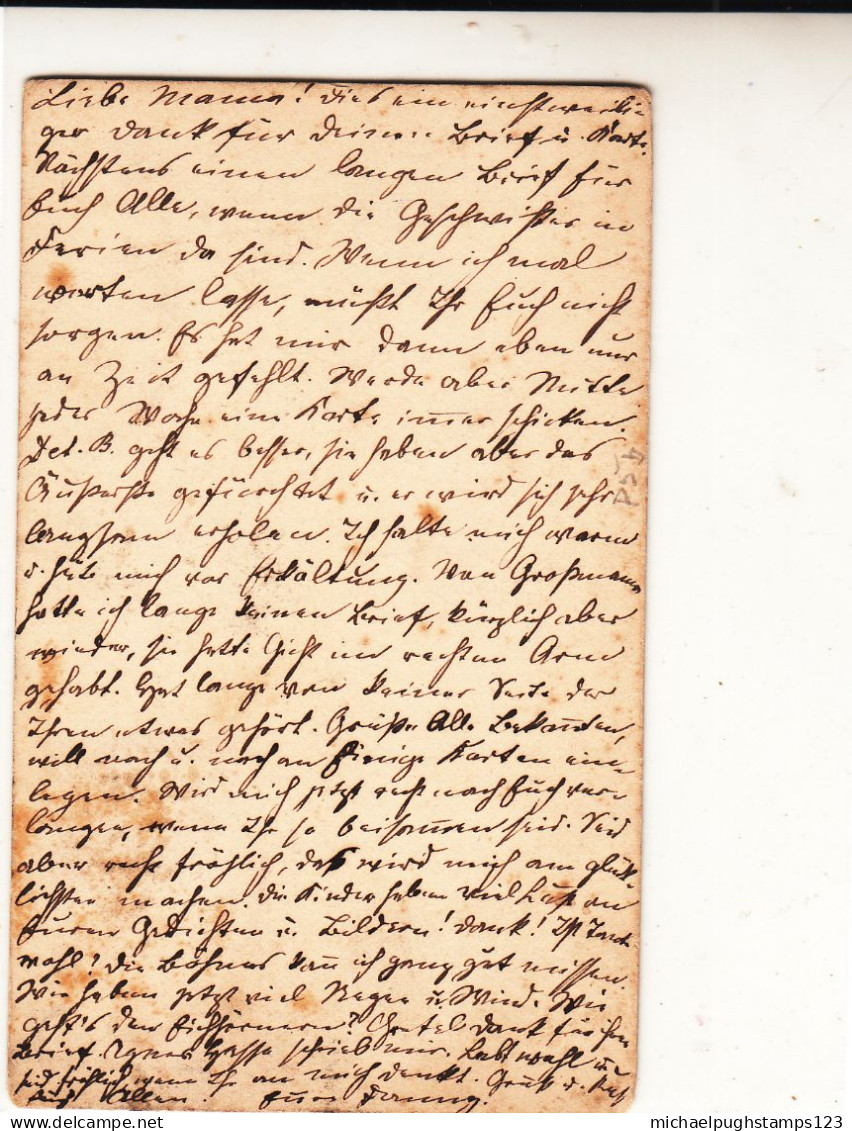 Liebe Mama! Dies ein einstweili-
ger Dank für Deinen Brief u. Karte.
Nächstens einen langen Brief für
Euch Alle, wenn die Geschwister in
Ferien da sind. Wenn ich mal
warten lasse, müßt Ihr Euch nicht
sorgen. Es hat mir dann eben nur
an Zeit gefehlt. Werde aber Mitte
jeder Woche eine Karte immer schicken.
Det. B. geht es besser, sie haben aber das
Äußerste gefürchtet u. er wird sich sehr
langsam erholen. Ich halte mich warm
u. hüte mich vor Erkältung. Von Großmama
hatte ich lange keinen Brief, kürzlich aber
wieder, sie hatte Gicht im rechten Arm
gehabt. Hat lange von keiner Seite der
Ihren etwas gehört. Grüße Alle Bekannten,
will nach u. nach an Einige Karten ein-
legen. Wird mich jetzt recht nach Euch ver-
langen, wenn Ihr so beisammen seid. Seid
aber recht fröhlich, das wird mich am glück-
lichsten machen. Die Kinder haben viel Lust an
Euren Gedichten u. Bildern! Dank! Ist
wohl? Die kann ich ganz gut missen.
Wir haben jetzt viel Regen u. Wind. Wie
geht's den Eichhörnern? Gretel Dank für ihren
Brief. Agnes Hasse schrieb mir. Lebt wohl u.
seid fröhlich, wenn Ihr an mich denkt. Gruß u. Kuß
Euch Allen. Eure Fanny.
michaelpughstamps123